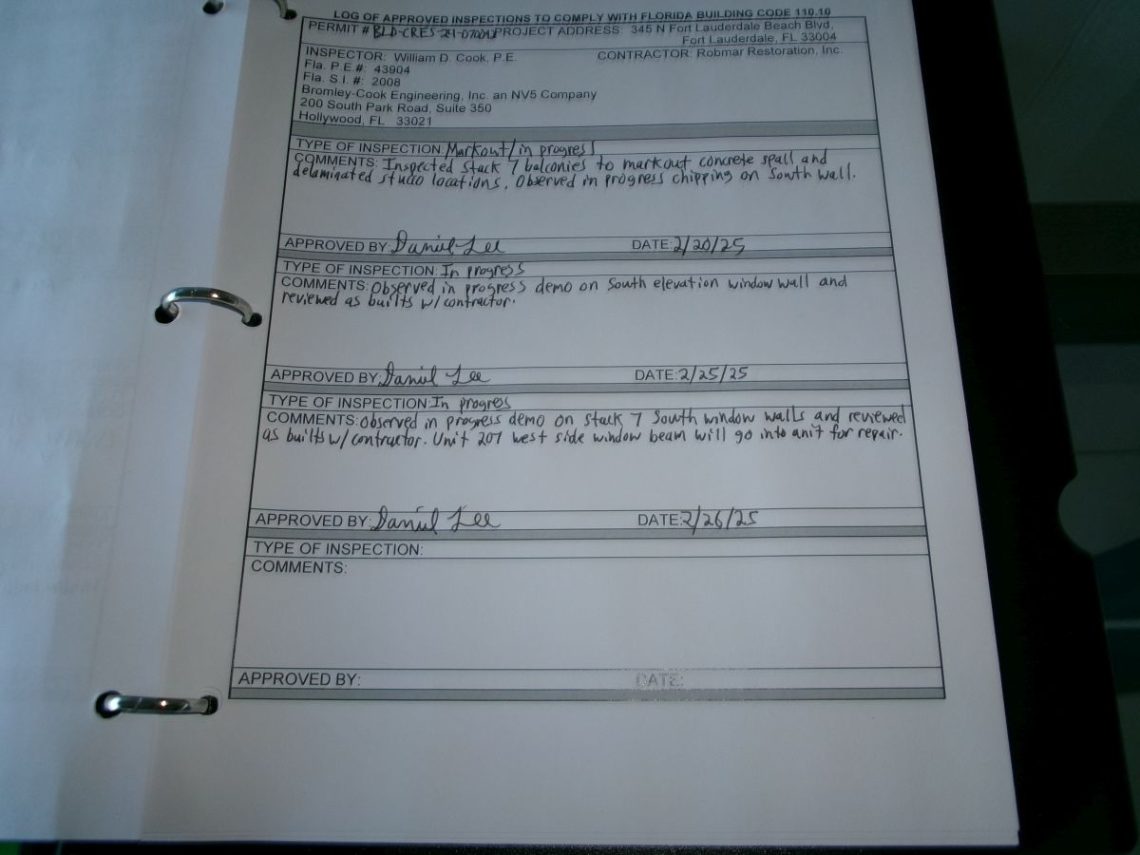 LOG OF APPROVED INSPECTIONS TO COMPLY WITH FLORIDA BUILDING CODE 110.10
PERMIT # BLD-CRES-21-07 PROJECT ADDRESS: 345 N Fort Lauderdale Beach Blvd,
Fort Lauderdale, FL 33004
INSPECTOR: William D. Cook, P.E. CONTRACTOR: Robmar Restoration, Inc.
Fla. P.E.#: 43904
Fla. S.I.#: 2008
Bromley-Cook Engineering, Inc. an NV5 Company
200 South Park Road, Suite 350
Hollywood, FL 33021
TYPE OF INSPECTION: Markout/in progress
COMMENTS: Inspected Stack 7 balconies to markout concrete spall and
delaminated stucco locations. Observed in progress chipping on South wall.
APPROVED BY: Daniel Lee DATE: 2/20/25
TYPE OF INSPECTION: In progress
COMMENTS: Observed in progress demo on South elevation window wall and
reviewed as builts w/contractor.
APPROVED BY: Daniel Lee DATE: 2/25/25
TYPE OF INSPECTION: In progress
COMMENTS: Observed in progress demo on stack 7 South window walls and reviewed
as builts w/contractor. Unit 207 west side window beam will go into unit for repair.
APPROVED BY: Daniel Lee DATE: 2/26/25
TYPE OF INSPECTION:
COMMENTS:
APPROVED BY: DATE: